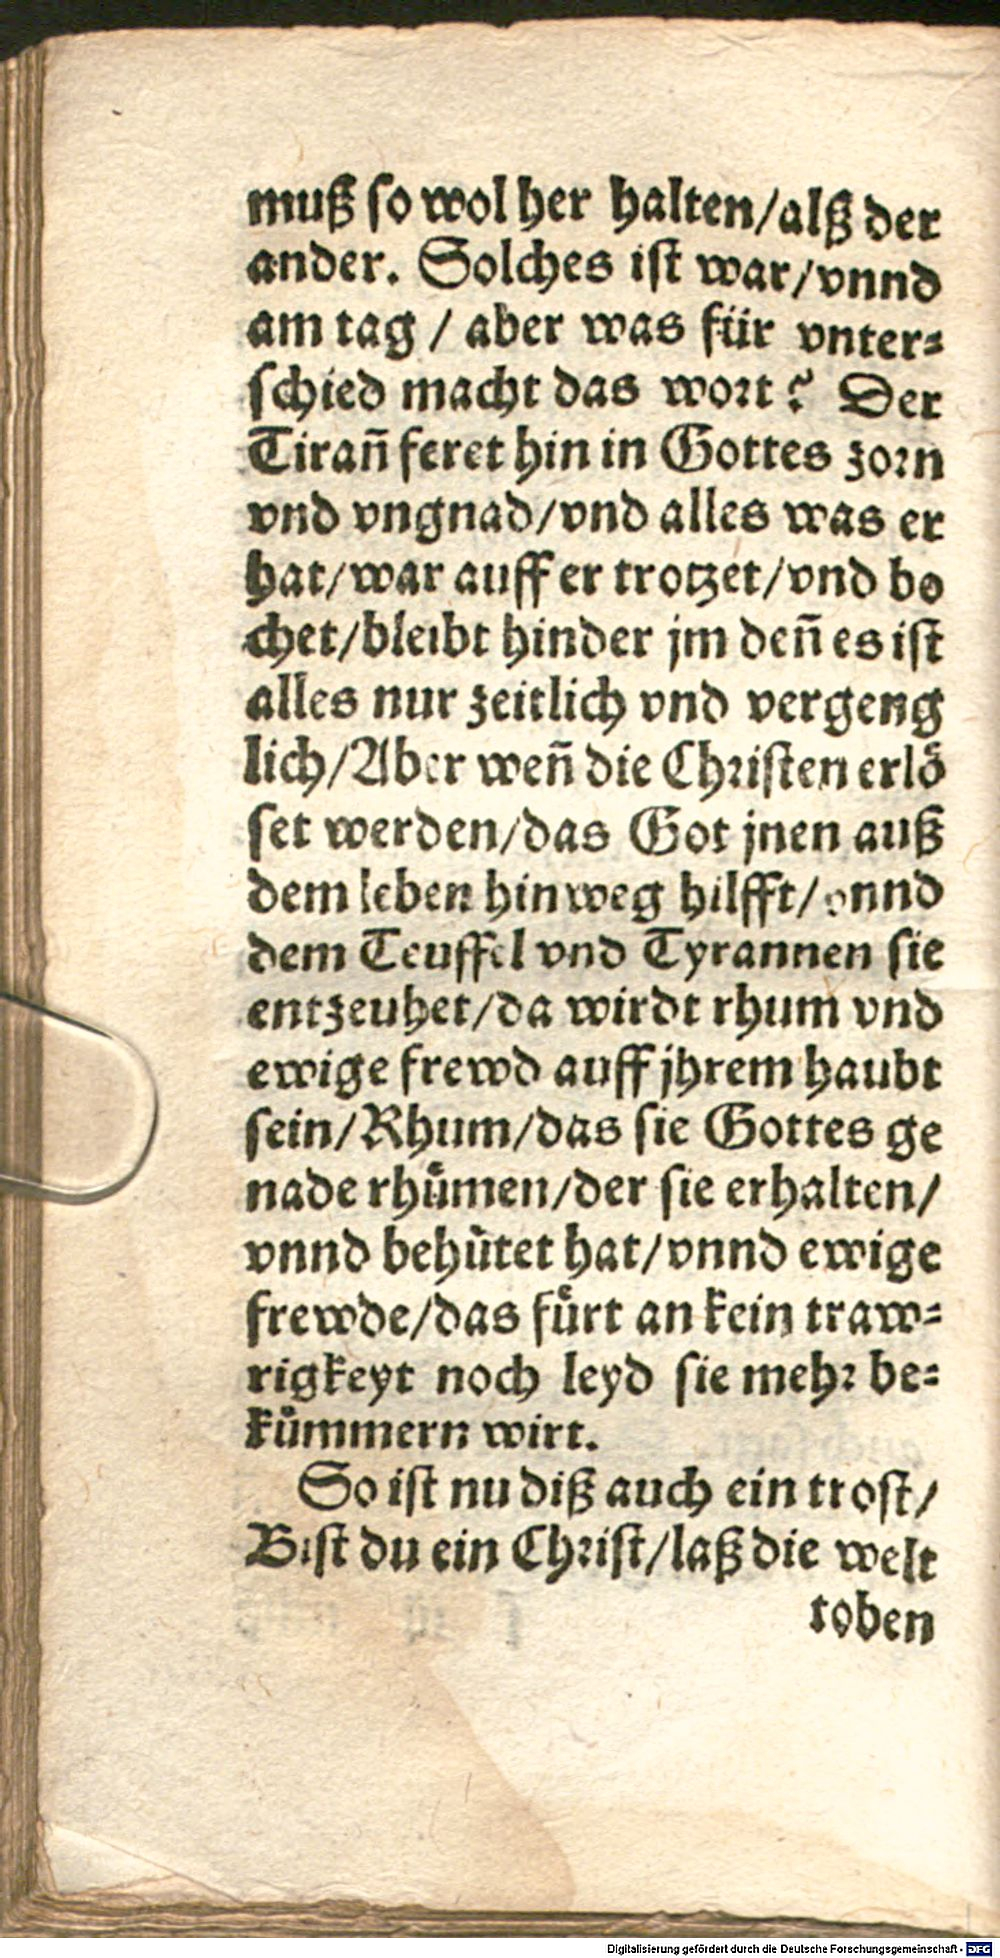 muß so wol her halten/alß der
ander. Solches ist war/vnnd
am tag / aber was für vnter-
schied macht das wort? Der
Tirañ feret hin in Gottes zorn
vnd vngnad/vnd alles was er
hat/war auff er trotzet/vnd bo
chet/bleibt hinder jm deñ es ist
alles nur zeitlich vnd vergeng
lich/Aber weñ die Christen erlö
set werden/das Got jnen auß
dem leben hinweg hilfft/vnnd
dem Teuffel vnd Tyrannen sie
entzeuhet/da wirdt rhum vnd
ewige frewd auff jhrem haubt
sein/Rhum/das sie Gottes ge
nade rhümen/der sie erhalten/
vnnd behütet hat/vnnd ewige
frewde/das fürt an kein traw-
rigkeyt noch leyd sie mehr be-
kümmern wirt.
So ist nu diß auch ein trost/
Bist du ein Christ/laß die welt
toben
Digitalisierung gefördert durch die Deutsche Forschungsgemeinschaft - DFG